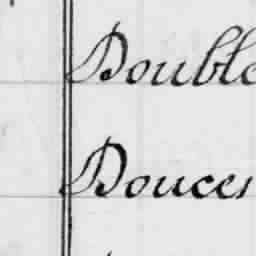 Double
Douces